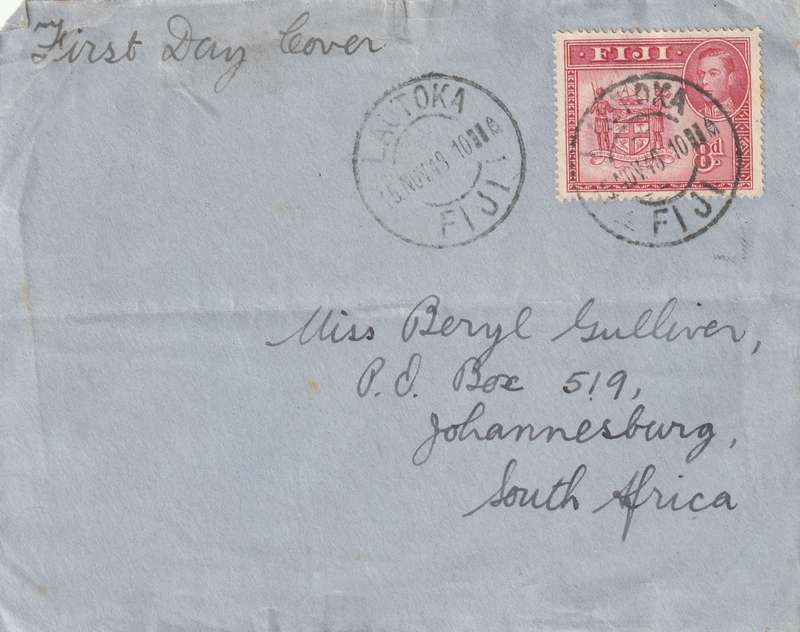 First Day Cover
· FIJI ·
8d.
LAUTOKA
NOV 48 10
FIJI
OKA
NOV 48 10
FIJI
Miss Beryl Gulliver,
P.O. Box 519,
Johannesburg,
South Africa